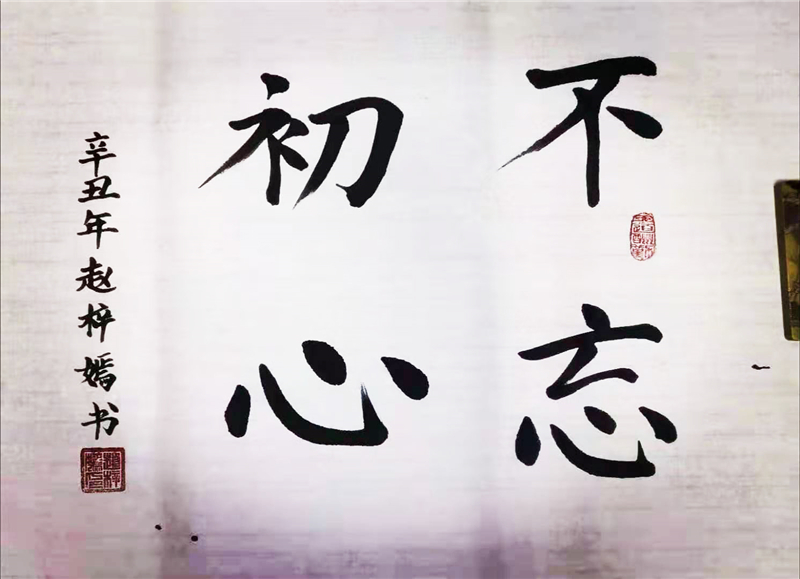 不忘
初心
辛丑年赵梓嫣书